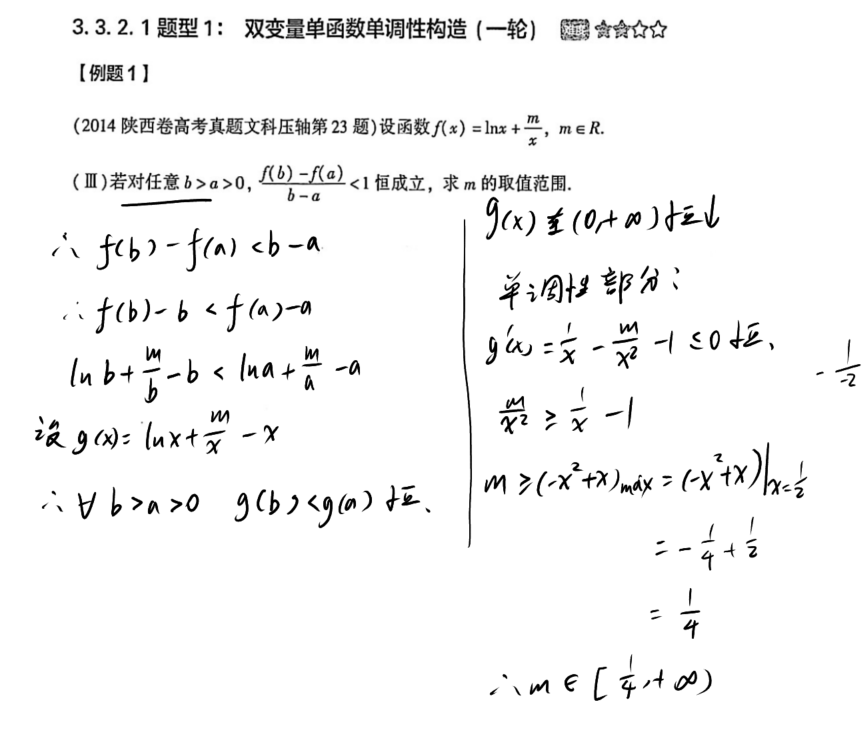 3.3.2.1 题型1: 双变量单函数单调性构造 (一轮) ☆☆☆☆
【例题1】
(2014 陕西卷高考真题文科压轴第 23 题)设函数 f(x) = lnx + m/x, m∈R.
(Ⅲ)若对任意 b>a>0, (f(b)-f(a))/(b-a) <1 恒成立, 求 m 的取值范围.
∴ f(b)-f(a)<b-a
∴ f(b)-b<f(a)-a
ln b+m/b-b<lna+m/a-a
设 g(x)=lnx+m/x-x
∴∀b>a>0 g(b)<g(a)恒.
g(x)在(0,+∞)恒↓
单调性部分:
g'(x)=1/x-m/x²-1≤0恒.
-1/-2
m/x²≥1/x-1
m≥(-x²+x)max=(-x²+x)|x=1/2
=-1/4+1/2
=1/4
∴m∈[1/4,+∞)